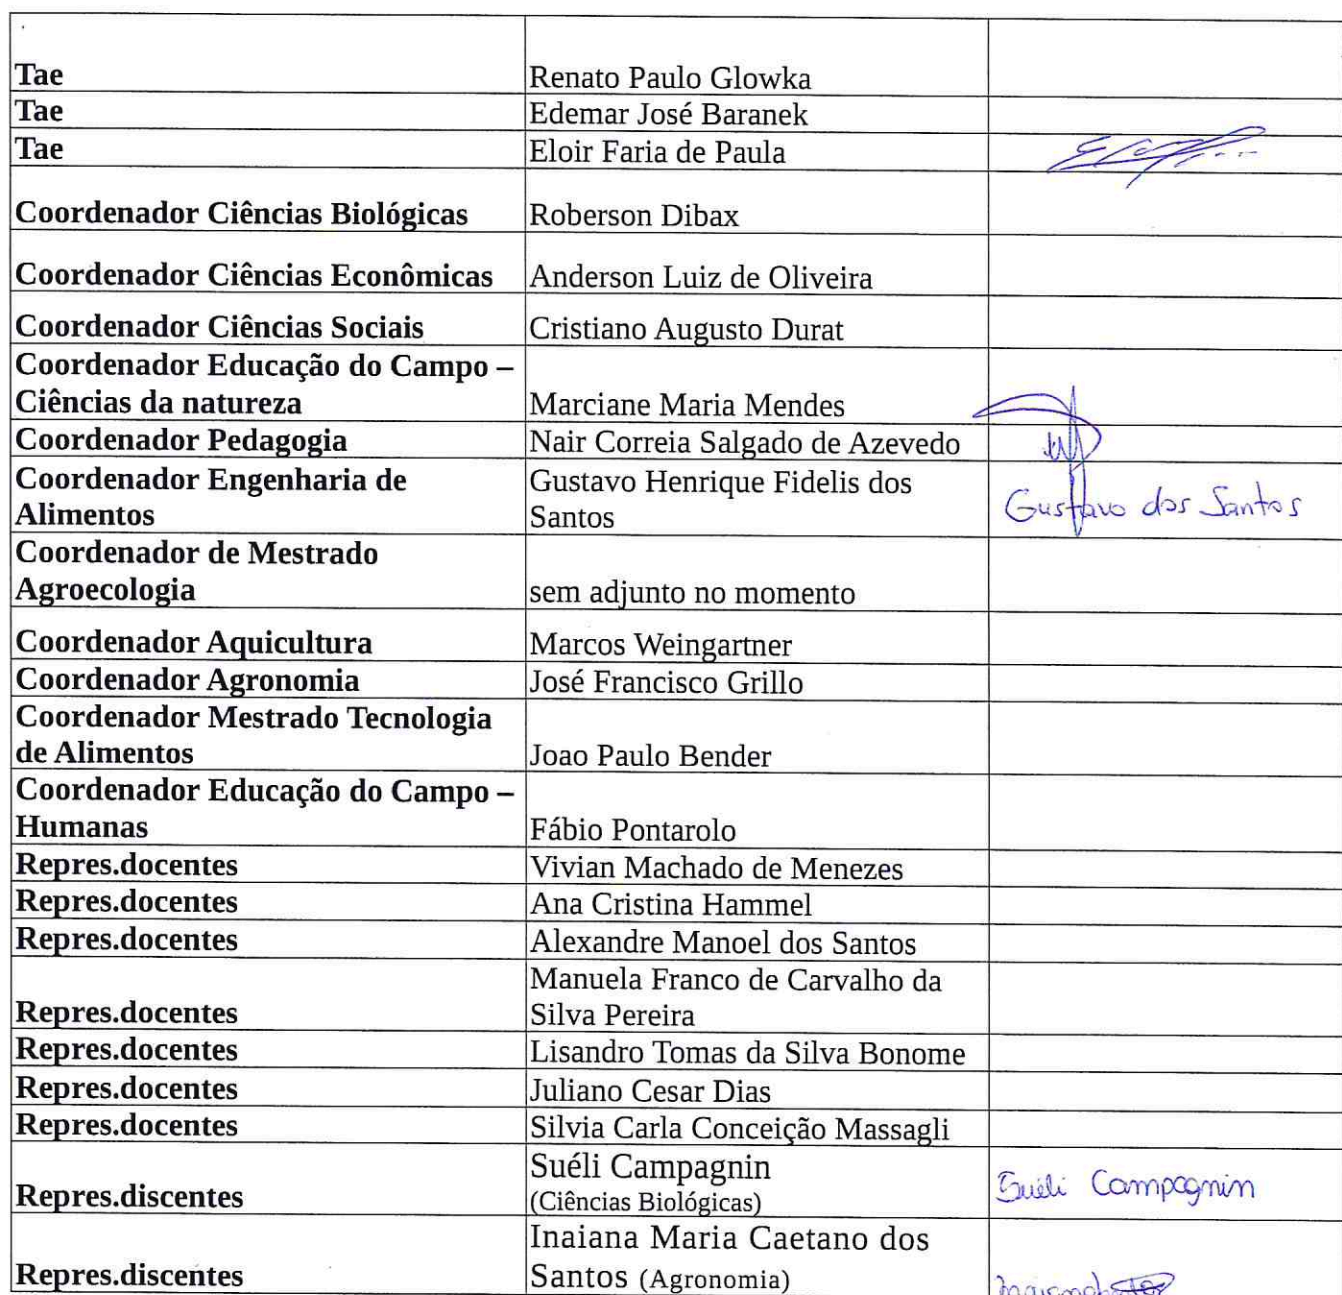 Tae Renato Paulo Glowka
Tae Edemar José Baranek
Tae Eloir Faria de Paula
Coordenador Ciências Biológicas Roberson Dibax
Coordenador Ciências Econômicas Anderson Luiz de Oliveira
Coordenador Ciências Sociais Cristiano Augusto Durat
Coordenador Educação do Campo –
Ciências da natureza Marciane Maria Mendes
Coordenador Pedagogia Nair Correia Salgado de Azevedo
Coordenador Engenharia de
Alimentos
Gustavo Henrique Fidelis dos
Santos
Gustavo dos Santos
Coordenador de Mestrado
Agroecologia sem adjunto no momento
Coordenador Aquicultura Marcos Weingartner
Coordenador Agronomia José Francisco Grillo
Coordenador Mestrado Tecnologia
de Alimentos Joao Paulo Bender
Coordenador Educação do Campo –
Humanas Fábio Pontarolo
Repres.docentes Vivian Machado de Menezes
Repres.docentes Ana Cristina Hammel
Repres.docentes Alexandre Manoel dos Santos
Repres.docentes
Manuela Franco de Carvalho da
Silva Pereira
Repres.docentes Lisandro Tomas da Silva Bonome
Repres.docentes Juliano Cesar Dias
Repres.docentes Silvia Carla Conceição Massagli
Repres.discentes
Suéli Campagnin
(Ciências Biológicas)
Suéli Campagnin
Repres.discentes
Inaiana Maria Caetano dos
Santos (Agronomia)